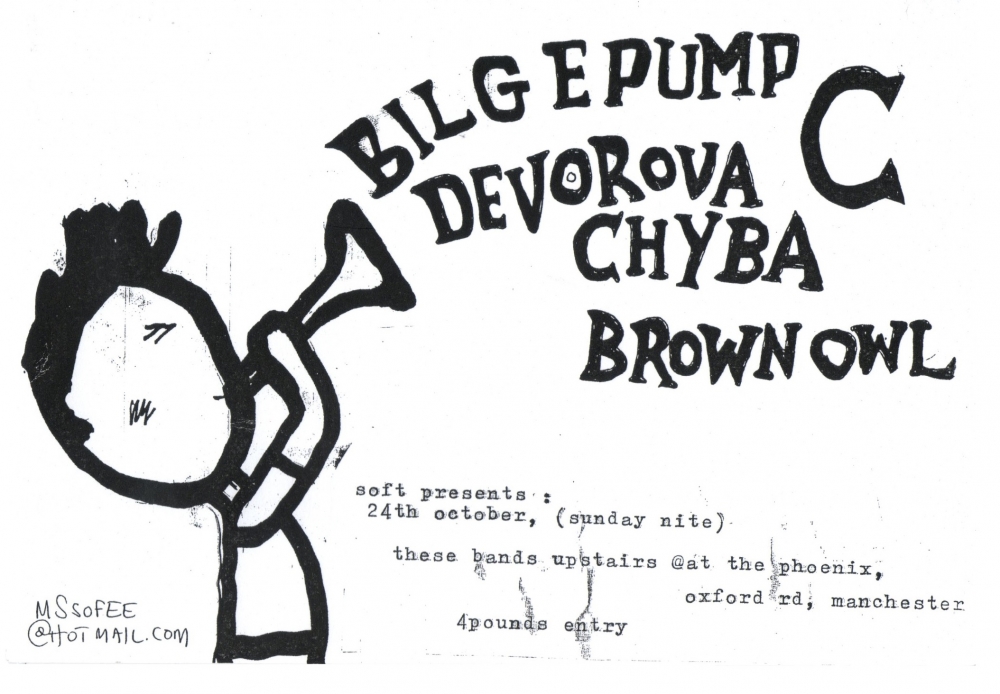 BILGE PUMP
C
DEVOROVA
CHYBA
BROWN OWL
soft presents :
24th october, (sunday nite)
these bands upstairs @at the phoenix,
oxford rd, manchester
4pounds entry
MSSOFEE
@HOTMAIL.COM